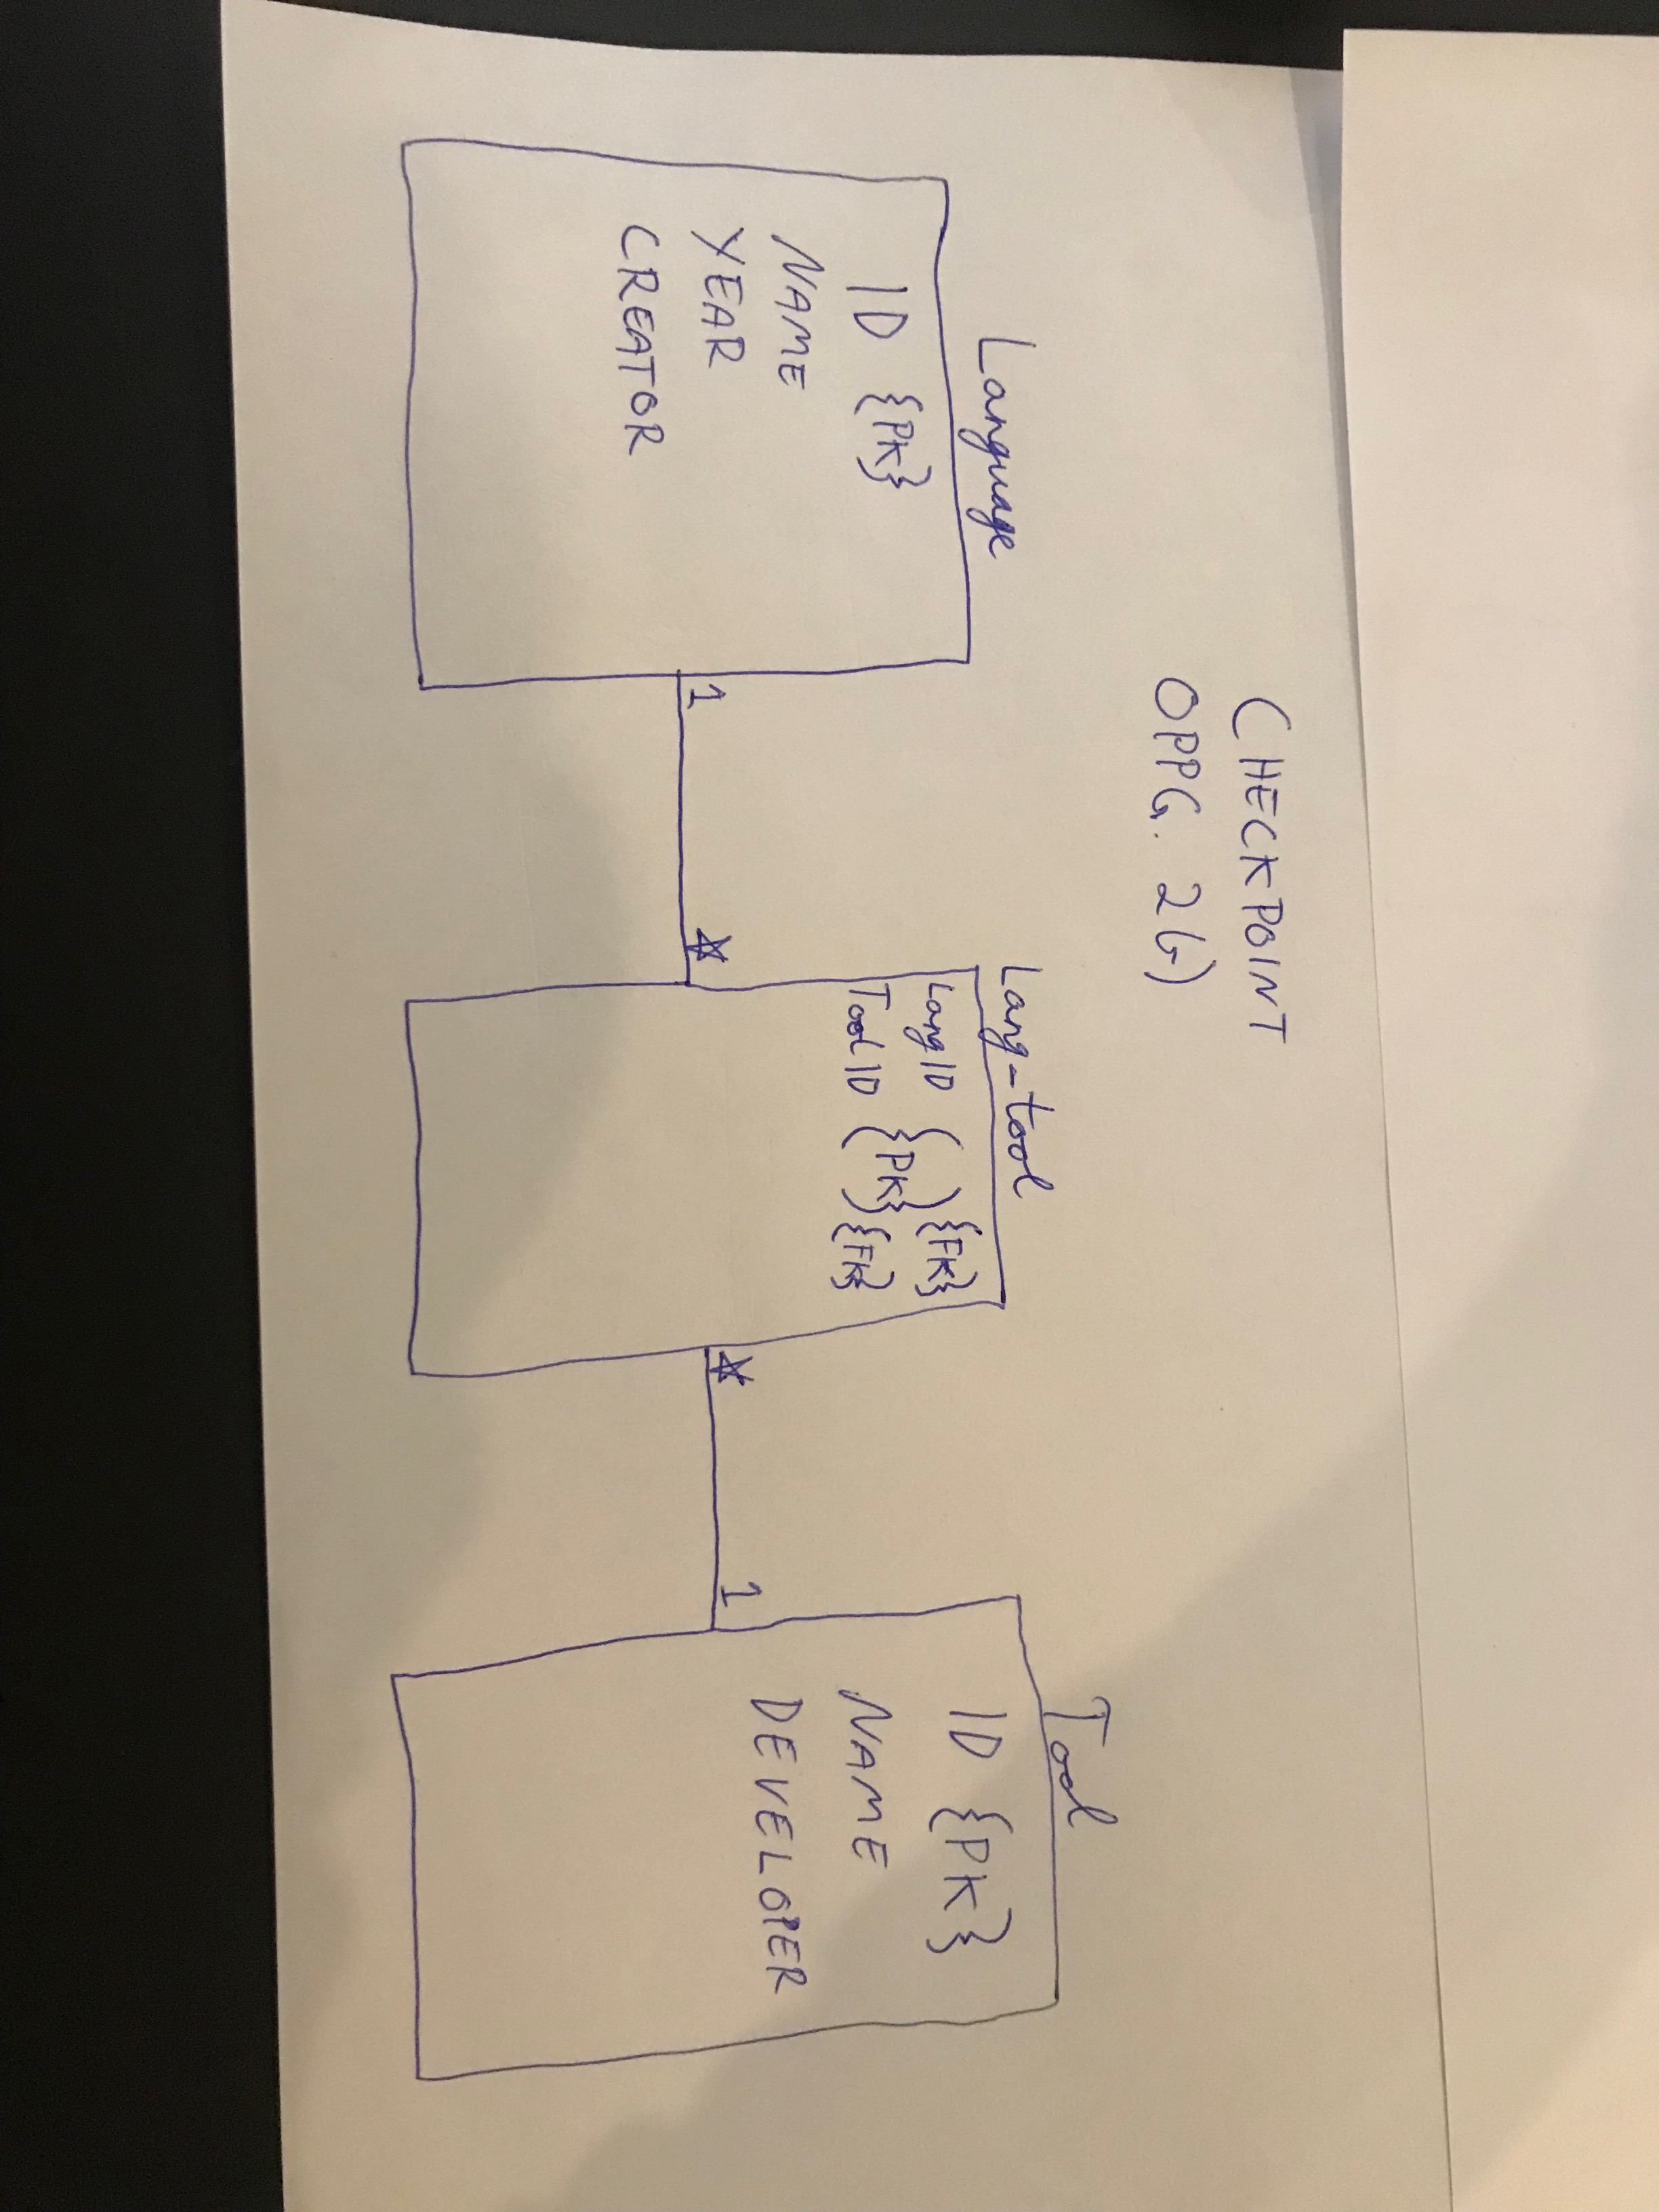 CHECKPOINT
OPPG. 2b)
Language
ID {PK}
NAME
YEAR
CREATOR
1
*
Lang-tool
LangID ( ) {FK}
{PK}
ToolID ( ) {FK}
*
1
Tool
ID {PK}
NAME
DEVELOPER